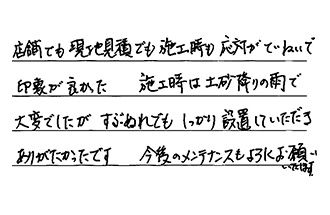 店舗でも現地見積でも施工時も応対がていねいで
印象が良かった　施工時は土砂降りの雨で
大変でしたがずぶぬれでもしっかり設置していただき
ありがたかったです　今後のメンテナンスもよろしくお願い
いたします